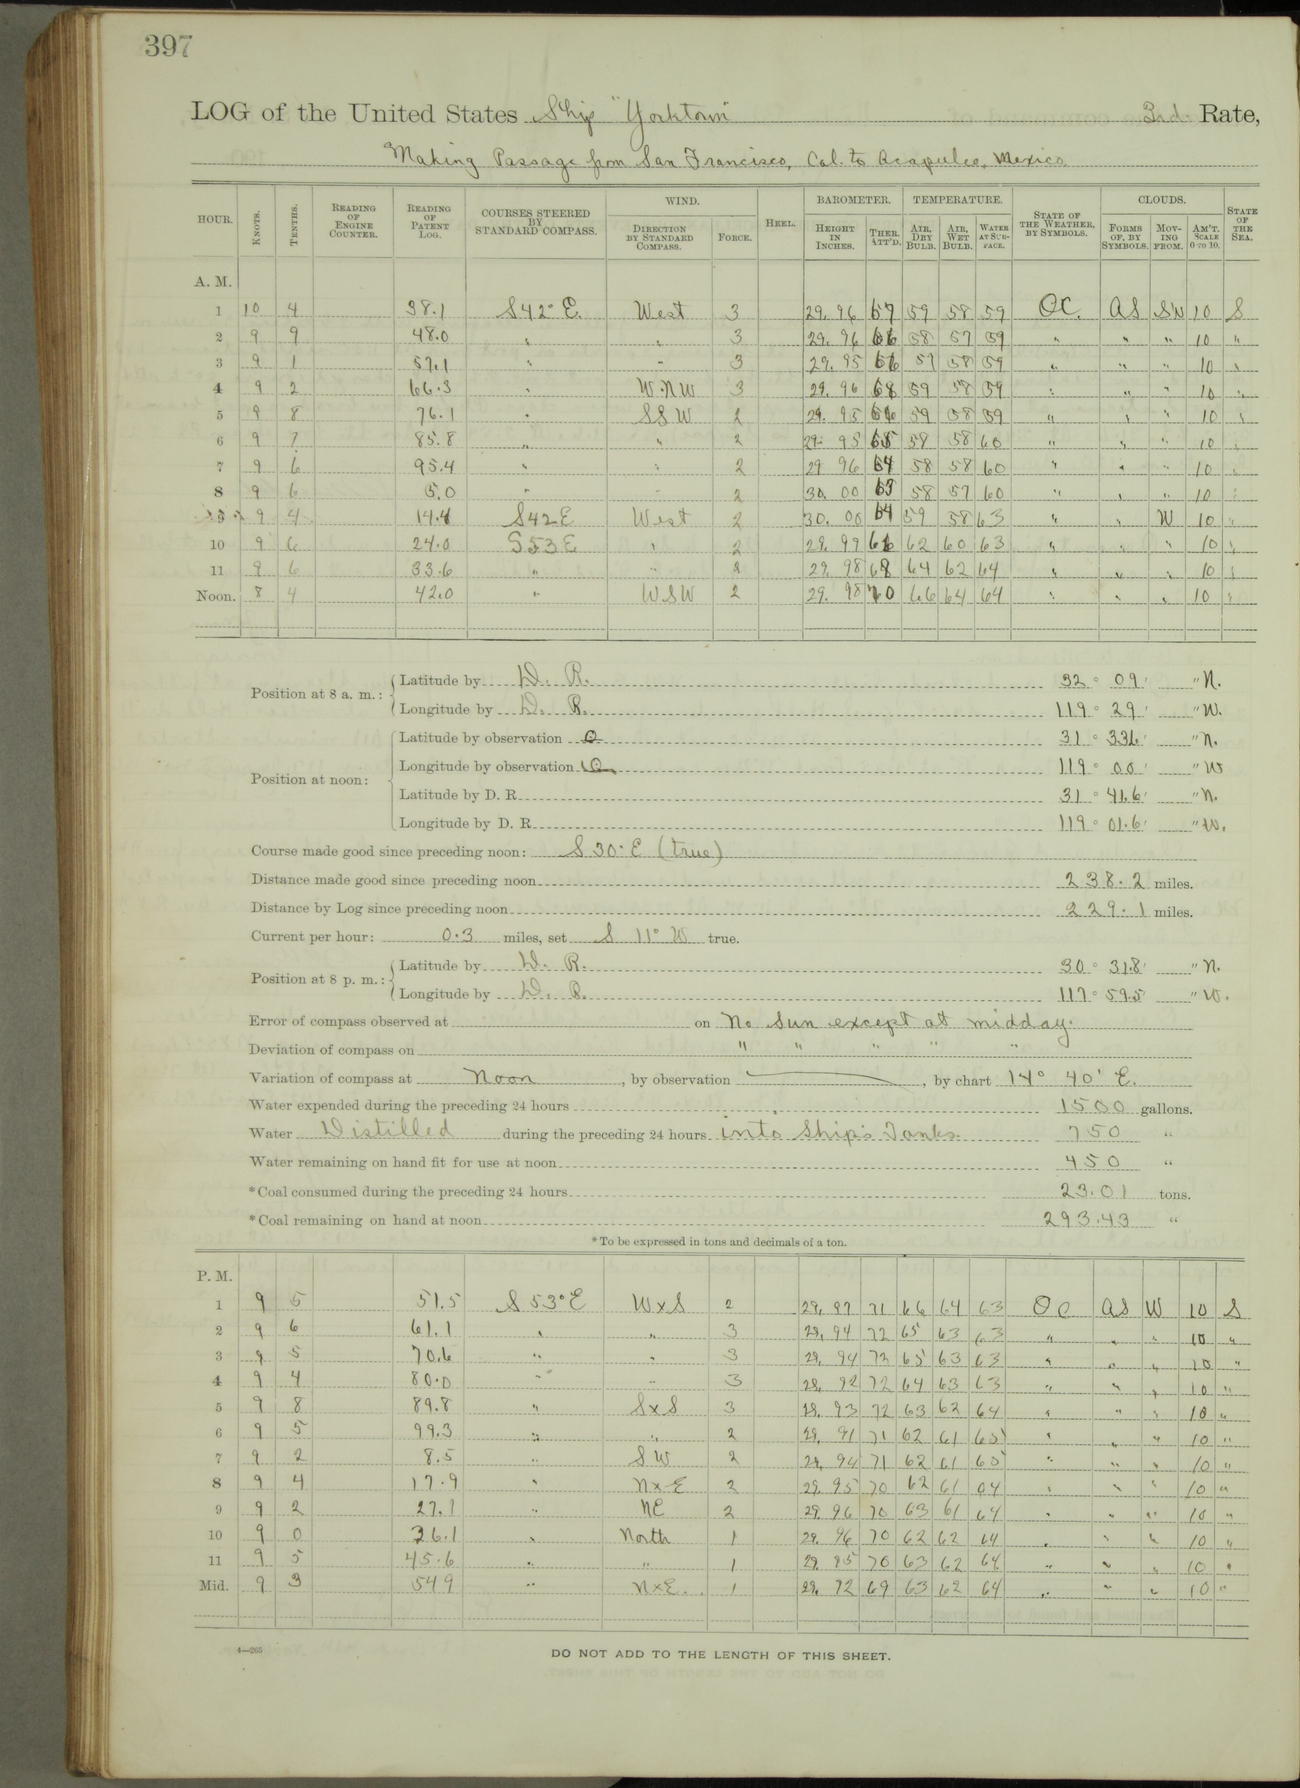 397
LOG of the United States Ship "Yorktown" 3rd. Rate,
Making Passage from San Francisco, Cal. to Acapulco, Mexico.
HOUR. KNOTS. TENTHS. READING OF ENGINE COUNTER. READING OF PATENT LOG. COURSES STEERED BY STANDARD COMPASS. WIND. DIRECTION BY STANDARD COMPASS. FORCE. HEEL. BAROMETER. HEIGHT IN INCHES. THER. ATT'D. TEMPERATURE. AIR, DRY BULB. AIR, WET BULB. WATER AT SURFACE. STATE OF THE WEATHER, BY SYMBOLS. CLOUDS. FORMS OF, BY SYMBOLS. MOVING FROM. AM'T. SCALE 0 TO 10. STATE OF THE SEA.
A. M.
1 10 4 38.1 S42°E. West 3 29.96 67 59 58 59 OC. AS SW 10 S
2 9 9 48.0 " " 3 29.96 66 58 57 59 " " " 10 "
3 9 1 57.1 " " 3 29.95 66 57 58 59 " " " 10 "
4 9 2 66.3 " W.NW 3 29.96 68 59 58 59 " " " 10 "
5 9 8 76.1 " SSW 2 29.95 66 59 58 59 " " " 10 "
6 9 7 85.8 " " 2 29.95 65 58 58 60 " " " 10 "
7 9 6 95.4 " " 2 29 96 64 58 58 60 " " " 10 "
8 9 6 5.0 " " 2 30.00 63 58 57 60 " " " 10 "
9 4 14.4 S42E West 2 30.00 64 59 58 63 " " W 10 "
10 9 6 24.0 S53E " 2 29.99 62 60 63 " " " 10 "
11 9 6 33.6 " " 2 29.98 68 64 62 64 " " " 10 "
Noon. 8 4 42.0 " WSW 2 29.98 70 66 64 64 " " " 10 "
Position at 8 a. m.: Latitude by D. R. 32° 09' " N.
Longitude by D. R. 119° 29' " W.
Position at noon: Latitude by observation 31° 33.6' " N.
Longitude by observation 119° 00' " W
Latitude by D. R. 31° 41.6' " N.
Longitude by D. R. 119° 01.6' " W.
Course made good since preceding noon: S 30° E (true)
Distance made good since preceding noon 238.2 miles.
Distance by Log since preceding noon 229.1 miles.
Current per hour: 0.3 miles, set S 11° W true.
Position at 8 p. m.: Latitude by D. R. 30° 31.8' " N.
Longitude by D. R. 117° 59.5' " W.
Error of compass observed at on No Sun except at midday.
Deviation of compass on " " " " "
Variation of compass at Noon, by observation , by chart 14° 40' E.
Water expended during the preceding 24 hours 1500 gallons.
Water Distilled during the preceding 24 hours into Ship's Tanks. 750 "
Water remaining on hand fit for use at noon 450 "
*Coal consumed during the preceding 24 hours 23.01 tons.
*Coal remaining on hand at noon 293.43 "
*To be expressed in tons and decimals of a ton.
P. M.
1 9 5 51.5 S 53° E WxS 2 29.97 71 66 64 63 OC AS W 10 S
2 9 6 61.1 " " 3 29.94 72 65 63 63 " " " 10 "
3 9 5 70.6 " " 3 29.94 72 65 63 63 " " " 10 "
4 9 4 80.0 " " 3 29.92 72 64 63 63 " " " 10 "
5 9 8 89.8 " SxS 3 29.93 72 63 62 64 " " " 10 "
6 9 5 99.3 " " 2 29.91 71 62 61 65 " " " 10 "
7 9 2 8.5 " SW 2 29.94 71 62 61 65 " " " 10 "
8 9 4 17.9 " NxE 2 29.95 70 62 61 64 " " " 10 "
9 9 2 27.1 " NE 2 29.96 70 63 61 64 " " " 10 "
10 9 0 36.1 " North 1 29.96 70 62 62 64 " " " 10 "
11 9 5 45.6 " " 1 29.95 70 63 62 64 " " " 10 "
Mid. 9 3 54 9 " NxE. 1 29.92 69 63 62 64 " " " 10 "
4—265
DO NOT ADD TO THE LENGTH OF THIS SHEET.